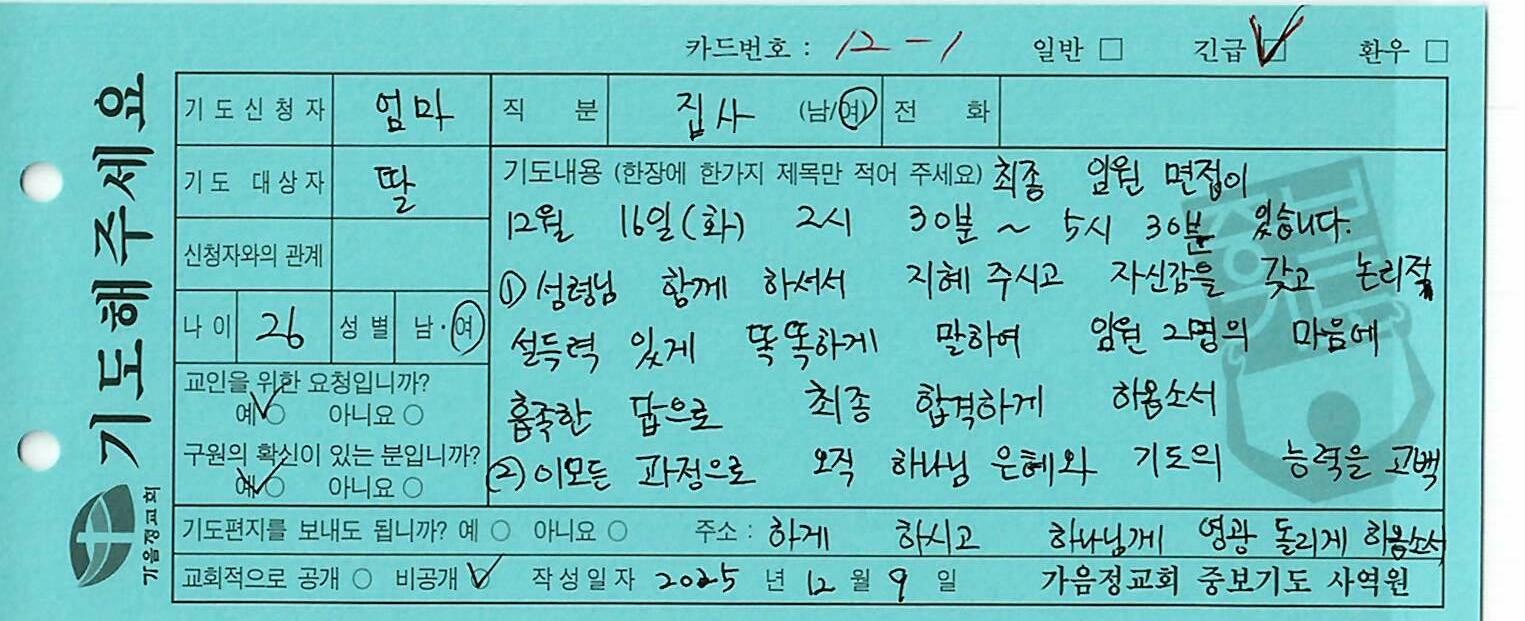 카드번호 : 12-1 일반 □ 긴급 ☑ 환우 □
기도해주세요
가음정교회
기도신청자 엄마 직 분 집사 (남/여) 전 화
기도 대상자 딸 기도내용 (한장에 한가지 제목만 적어 주세요) 최종 임원 면접이
12월 16일(화) 2시 30분 ~ 5시 30분 있습니다.
신청자와의 관계
① 성령님 함께 하셔서 지혜 주시고 자신감을 갖고 논리적
나이 26 성별 남·여
설득력 있게 똑똑하게 말하여 임원 2명의 마음에
교인을 위한 요청입니까?
예 ○ 아니요 ○
흡족한 답으로 최종 합격하게 하옵소서
구원의 확신이 있는 분입니까?
예 ○ 아니요 ○
(2) 이모든 과정으로 오직 하나님 은혜와 기도의 능력을 고백
기도편지를 보내도 됩니까? 예 ○ 아니요 ○ 주소 : 하게 하시고 하나님께 영광 돌리게 하옵소서
교회적으로 공개 ○ 비공개 ○ 작성일자 2025 년 12 월 9 일 가음정교회 중보기도 사역원